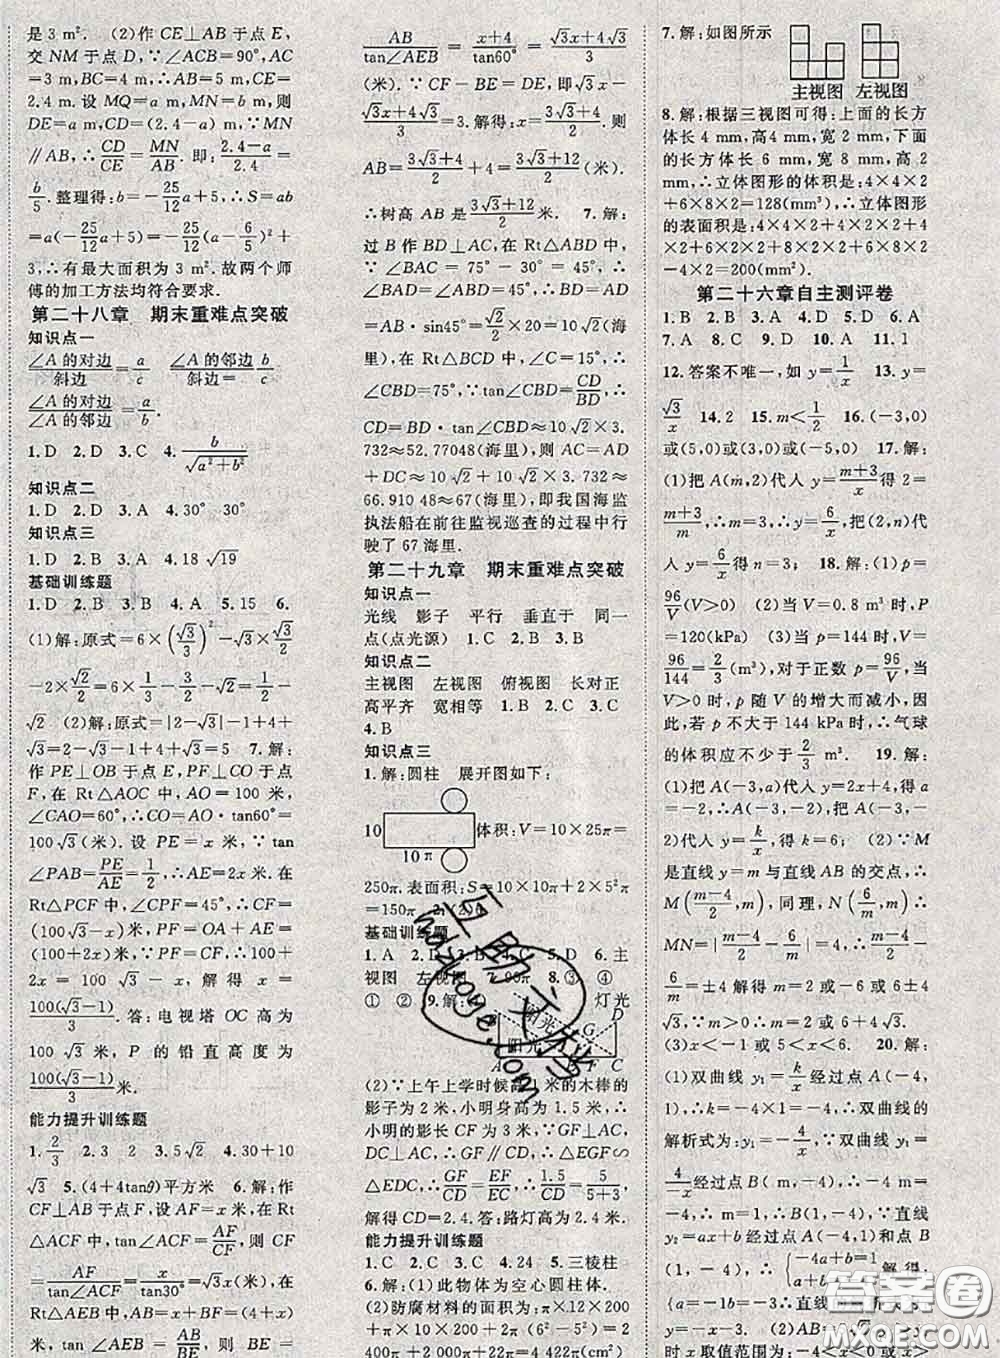 是3 m². (2)作CE⊥AB于点E,
交NM于点D,∵∠ACB=90°,AC
=3 m,BC=4 m,∴AB=5 m,CE=
2.4 m.设MQ=a m,MN=b m,则
DE=a m,CD=(2.4-a)m,∵MN
∥AB,∴CD/CE=MN/AB. 即:(2.4-a)/2.4=
b/5.整理得:b=-25/12a+5,∴S=ab
=a(-25/12a+5)=-25/12(a-6/5)²+
3,∴有最大面积为3 m².故两个师
傅的加工方法均符合要求.
第二十八章 期末重难点突破
知识点一
∠A的对边/斜边=a/c ∠A的邻边/斜边 b/c
∠A的对边/∠A的邻边=a/b.
1.D 2.D 3.C 4.b/√(a²+b²)
知识点二
1.D 2.D 3.A 4.30° 30°
知识点三
1.D 2.B 3.A 4.18√19
基础训练题
1.D 2.B 3.B 4.A 5.15 6.
(1)解:原式=6×(√3/3)²-√3×√3/2
-2×√2/2=6×1/3-3/2-√2=1/2-
√2 (2)解:原式=|2-√3|+√4+
√3=2-√3-1+4+√3=5 7.解:
作PE⊥OB于点E,PF⊥CO于点
F,在Rt△AOC中,AO=100米,
∠CAO=60°,∴CO=AO·tan60°=
100√3(米).设PE=x米,∵tan
∠PAB=PE/AE=1/2,∴AE=2x.在
Rt△PCF中,∠CPF=45°,CF=
(100√3-x)米,PF=OA+AE=
(100+2x)米,∵PF=CF,∴100+
2x=100√3-x,解得x=
100(√3-1)/3.答:电视塔OC高为
100√3米,P的铅直高度为
100(√3-1)/3米.
能力提升训练题
1.2/3 2.3 2 3.5√2 4.30+10
√3 5.(4+4tanθ)平方米 6.解:作
CF⊥AB于点F,设AF=x米,在
Rt△ACF中,tan∠ACF=AF/CF,则CF
=AF/tan∠ACF=x/tan30°=√3x(米),在
Rt△AEB中,AB=x+4(米),DF=
米,tan∠AEB=AB/BE,则BE=
AB/tan∠AEB=(x+4)/tan60°=(√3x+4√3)/3
(米).∵CF-BE=DE,即√3x-
(√3x+4√3)/3=3.解得:x=(3√3+4)/2.则
AB=(3√3+4)/2+4=(3√3+12)/2(米).
∴树高AB是(3√3+12)/2米. 7.解:
过B作BD⊥AC,在Rt△ABD中,
∵∠BAC=75°-30°=45°,∴BD=
AB·sin45°=√2/2×20=10√2(海
里),在Rt△BCD中,∠C=15°,
∠CBD=75°,∵tan∠CBD=CD/BD,∴
CD=BD·tan∠CBD≈10√2×3.
732≈52.77048(海里).则AC=AD
+DC≈10√2+10√2×3.732≈
66.910 48≈67(海里),即我国海监
执法船在前往监视巡查的过程中行
驶了67海里.
第二十九章 期末重难点突破
知识点一
光线 影子 平行 垂直于 同一
点(点光源) 1.C 2.B 3.B
知识点二
主视图 左视图 俯视图 长对正
高平齐 宽相等 1.B 2.C 3.C
4.B
知识点三
1.解:圆柱 展开图如下:
10 10π 体积:V=10×25π=
250π.表面积:S=10×10π+2×5²π
=150π
基础训练题
1.A 2.D C 5.D 6.主
视图 左视图 8.③ ④
① ② 9.解: 灯光
阳光 G D
阳光
A F C
(2)∵上午上学时候高1米的木棒的
影子为2米,小明身高为1.5米,∴
小明的影长CF为3米,∵GF⊥AC,
DC⊥AC,∴GF∥CD,∴△EGF∽
△EDC,∴GF/CD=EF/EC,∴1.5/CD=5/(5+3),
解得CD=2.4.答:路灯高为2.4米.
能力提升训练题
1.C 2.C 3.C 4.24 5.三棱柱
6.解:(1)此物体为空心圆柱体.
(2)防腐材料的面积为π×12×200
7.解:如图所示
主视图 左视图
8.解:根据三视图可得:上面的长方
体长4 mm,高4 mm,宽2 mm,下面
的长方体长6 mm,宽8 mm,高
2 mm,∴立体图形的体积是:4×4×2
+6×8×2=128(mm³),∴立体图形
的表面积是:4×4×2+4×2×2+4
×2+6×2×2+8×2×2+6×8×2
-4×2=200(mm²).
第二十六章自主测评卷
1.B 2.B 3.D 4.D 5.D 6.A
7.A 8.A 9.D 10.A 11.1
12.答案不唯一,如y=1/x 13.y=
√3/x 14.2 15.m<1/2 16.(-3,0)
或(5,0)或(3,0)或(-5,0) 17.解:
(1)把A(m,2)代人y=(m+3)/x得2=
(m+3)/m,∴m=3,∴y=6/x,把(2,n)代
人y=6/x得n=3; 18.解:(1)p=
96/V(V>0) (2)当V=0.8 m³时,P
=120(kPa) (3)当p=144时,V=
96/144=2/3(m³),对于正数p=96/V(V
>0)时,p随V的增大而减小,因
此,若p不大于144 kPa时,∴气球
的体积应不少于2/3 m³. 19.解:
(1)把A(-3,a)代人y=2x+4得a
=-2,∴A(-3,-2),把A(-3,-
2)代人y=k/x,得k=6; (2)∵M
是直线y=m与直线AB的交点,∴
M((m-4)/2,m),同理,N(6/m,m),∴
MN=|(m-4)/2-6/m|=4,∴(m-4)/2-
6/m=±4解得m=2或6或-6±4√3,
∵m>0,∴m=2或6或6+4√3;
(3)x<-1或5<x<6 20.解:
(1)∵双曲线y₁=k/x经过点A(-1,
4),∴k=-1×4=-4,∴双曲线的
解析式为:y₁=-4/x,∵双曲线y₁=
-4/x经过点B(m,-4),∴-4m=-
4,∴m=1,∴B(1,-4),∵直线
y₂=ax+b经过点A(-1,4)和点B
(1,-4),∴{-4a+b=1 a+b=1 解得:
{a=-1 b=-3,∴直线的解析式为:
x取值范围为:-4<x<0或x>
答案圈
MXQE.COM
互助文件
hdzuoye.com